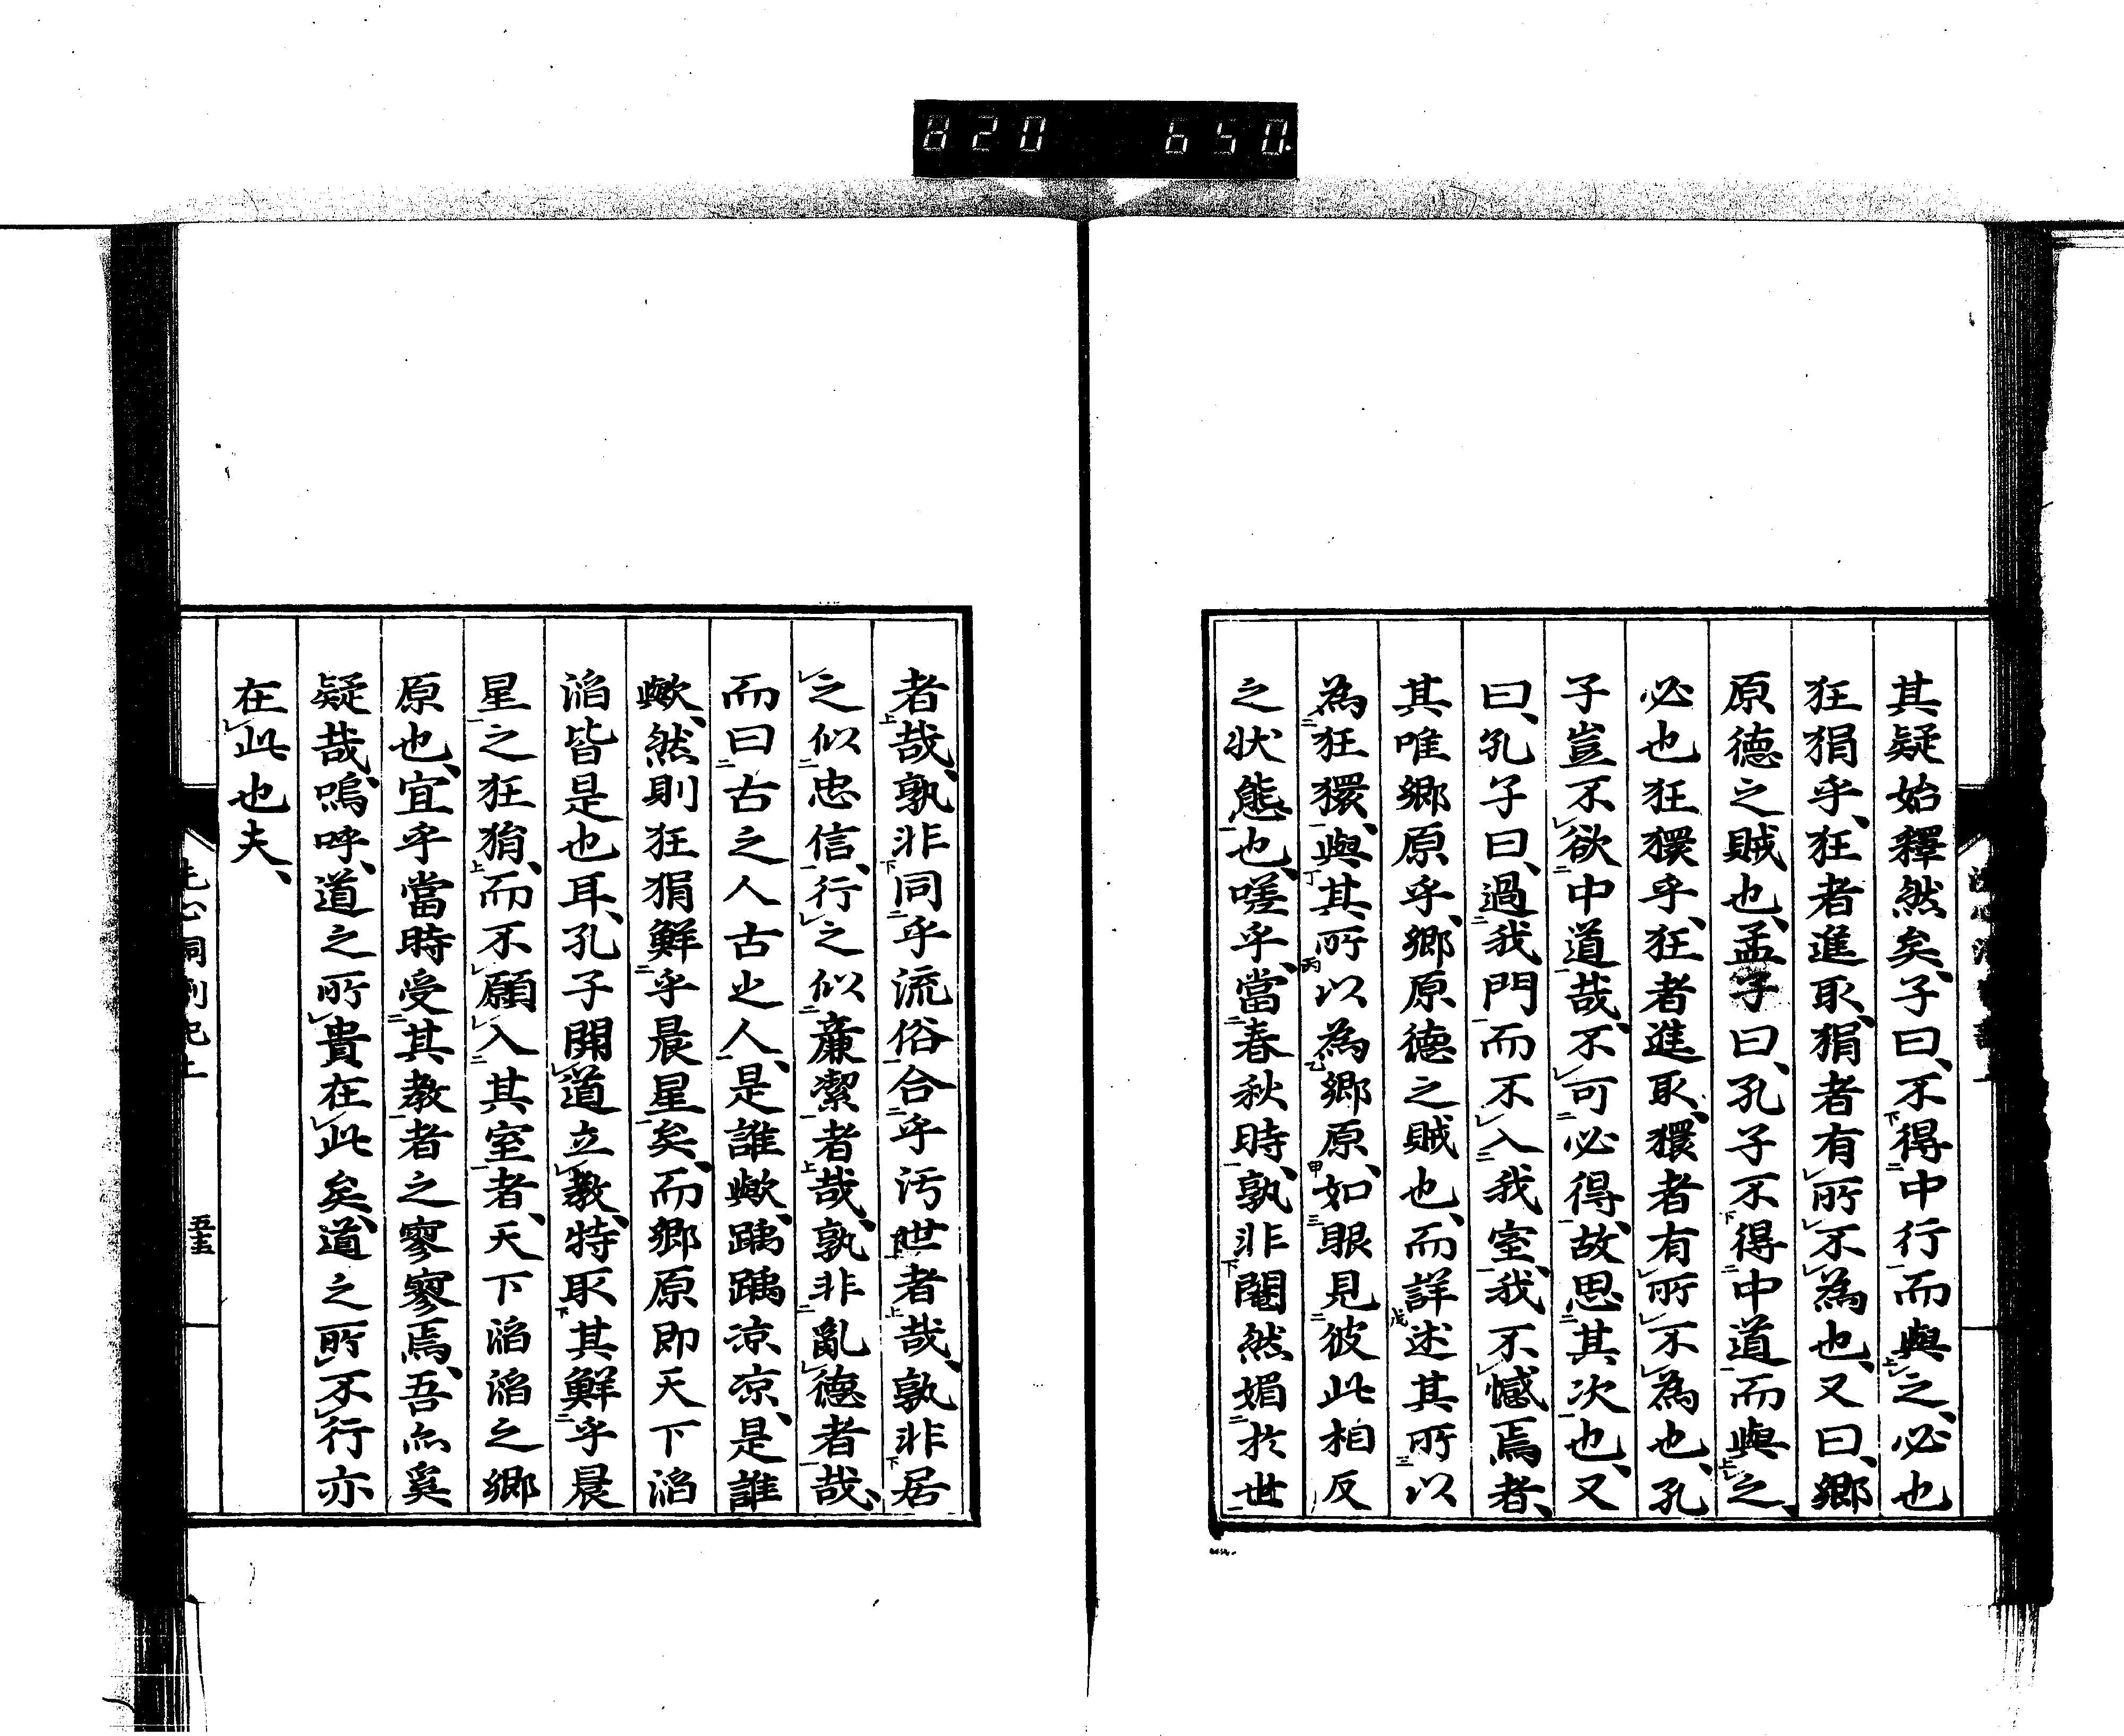 820 650.
其疑始釋然矣、子曰、不得中行而與之、必也
狂狷乎、狂者進取、狷者有所不為也、又曰、鄉
原德之賊也、孟子曰、孔子不得中道而與之、
必也狂獧乎、狂者進取、獧者有所不為也、孔
子豈不欲中道哉、不可必得、故思其次也、又
曰、孔子曰、過我門而不入我室、我不憾焉者、
其唯鄉原乎、鄉原德之賊也、而詳述其所以
為狂獧、與其所以為鄉原、如眼見彼此相反
之状態也、嗟乎、當春秋時、孰非閹然媚於世
者哉、孰非同乎流俗合乎汚世者哉、孰非居
之似忠信、行之似廉潔者哉、孰非亂德者哉、
而曰古之人古之人、是誰歟、踽踽涼涼、是誰
歟、然則狂狷鮮乎晨星矣、而鄉原即天下滔
滔皆是也耳、孔子開道立教、特取其鮮乎晨
星之狂狷、而不願入其室者、天下滔滔之鄉
原也、宜乎當時受其教者之寥寥焉、吾亦奚
疑哉、嗚呼、道之所貴在此矣、道之所不行亦
在此也夫、
洞劄記上
五十五